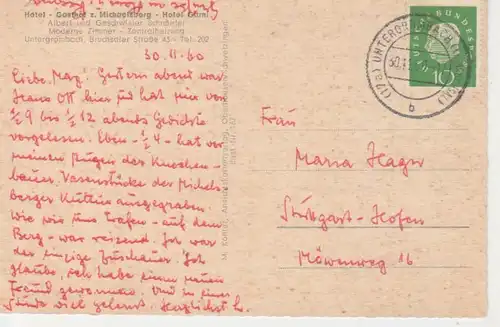 Hotel - Gasthof z. Michaelsberg - Hotel garni
Albert und Geschwister Schrädter
Moderne Zimmer - Zentralheizung
Untergrombach, Bruchsaler Straße 45 - Tel. 202
30. 11. 60
Liebe Mag! Gestern abend war
Ott hier und hat von
½ 9 bis ½ 12 abends Gedichte
vorgelesen. Eben - ¼ 4 - hat vor
meinen Augen der Knochen-
bauer Vasenstücke der Michels-
berger Kultur ausgegraben.
Wie wir uns trafen - auf dem
Berg - war reizend. Ich war
der einzige Zuschauer. Ich
glaube, ich habe einen neuen
Freund gewonnen. Und in einer
Stunde viel gelernt. Herzlichst
DEUTSCHE BUNDESPOST
10
(17a) UNTERGROMBACH
b
Frau
Maria Hager
Stuttgart-Hofen
Möwenweg 16